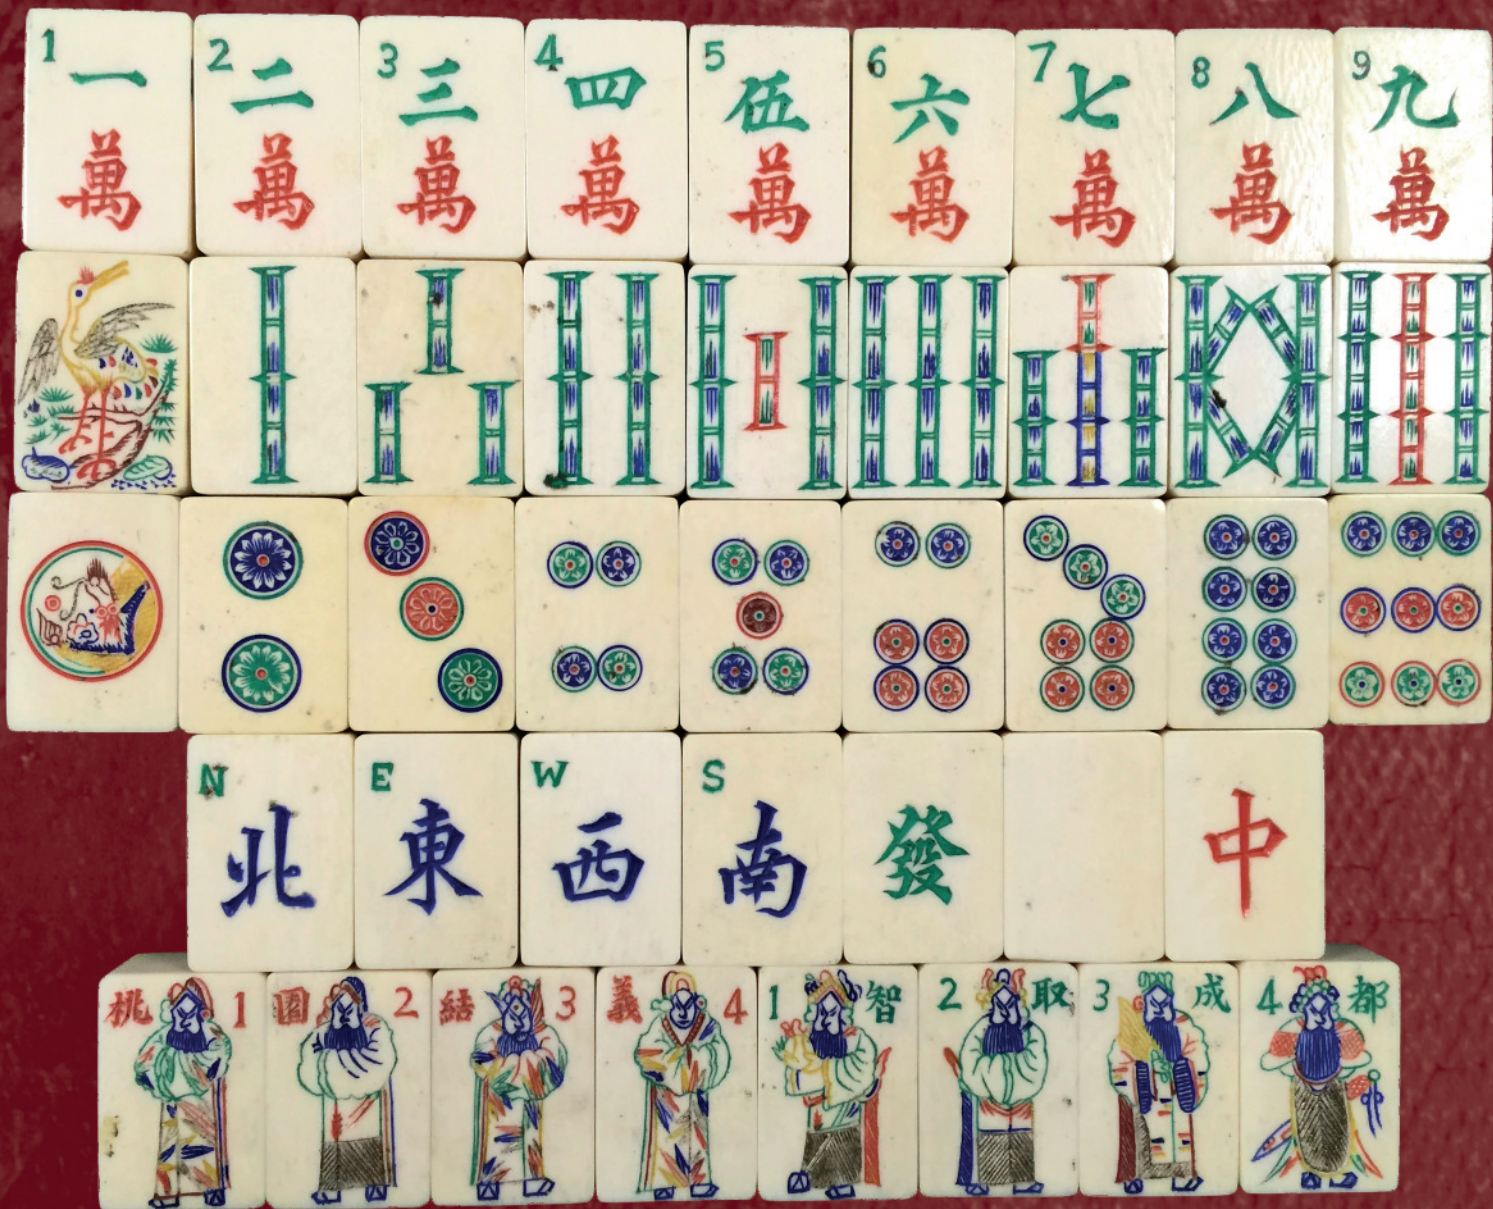 1 一 萬 2 二 萬 3 三 萬 4 四 萬 5 伍 萬 6 六 萬 7 七 萬 8 八 萬 9 九 萬
N 北 E 東 W 西 S 南 發 中
桃 1 園 2 結 3 義 4 1 智 2 取 3 成 4 都